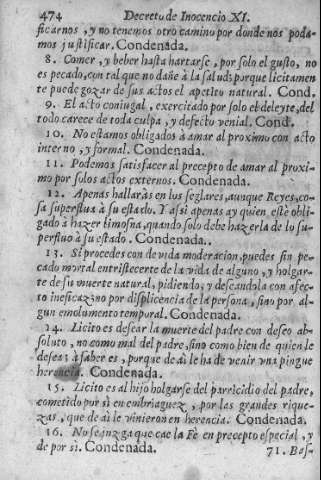 474 Decreto de Inocencio XI.
ficarnos , y no tenemos otro camino por donde nos poda-
mos justificar. Condenada.
8. Comer , y beber hasta hartarse , por solo el gusto, no
es pecado, con tal que no dañe à la salud; porque licitamen-
te puede gozar de sus actos el apetito natural. Cond.
9. El acto coniugal , exercitado por solo el deleyte, del
todo carece de toda culpa , y defecto venial. Cond.
10. No estamos obligados à amar al proximo con acto
interno , y formal. Condenada.
11. Podemos satisfacer al precepto de amar al proxi-
mo por solos actos externos. Condenada.
12. Apenas hallaràs en los seglares, aunque Reyes, co-
sa superflua à su estado. Y assi apenas ay quien estè obli-
gado à hazer limosna, quando solo debe hazerla de lo su-
perfluo à su estado . Condenada..
13. Si procedes con devida moderacion, puedes sin pe-
cado mortal entristecerte de la vida de alguno , y holgar-
te de su muerte natural, pidiendo, y deseandola con afec-
to ineficaz; no por displicencia de la persona , sino por al-
gun emolumento temporal. Condenada.
14. Licito es desear la muerte del padre con deseo ab-
soluto , no como mal del padre, sino como bien de quien le
desea ; à saber es , porque de ài le ha de venir vna pingue
herencia. Condenada.
15. Licito es al hijo holgarse del parricidio del padre,
cometido por sì en embriaguez , por las grandes rique-
zas, que de ài le vinieron en herencia. Condenada.
16. No se juzga que cae la Fè en precepto especial , y
de por sì. Condenada. 71. Bas-